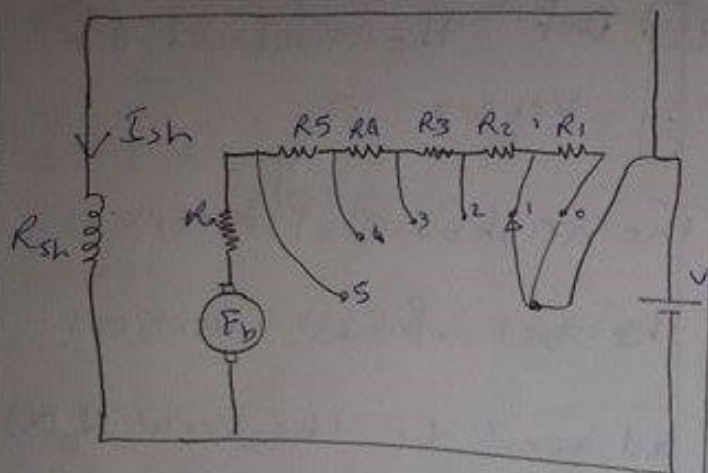 Ish
R5 R4 R3 R2 R1
Rsh
Ra
4 3 2 1 0
5
Eb
V